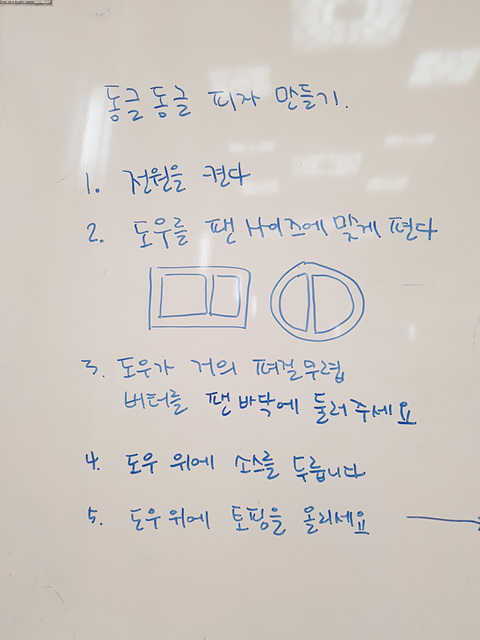 동글동글 피자 만들기.
1. 전원을 켠다
2. 도우를 팬 사이즈에 맞게 편다
3. 도우가 거의 펴질무렵
버터를 팬 바닥에 둘러주세요
4. 도우 위에 소스를 두릅니다
5. 도우 위에 토핑을 올리세요